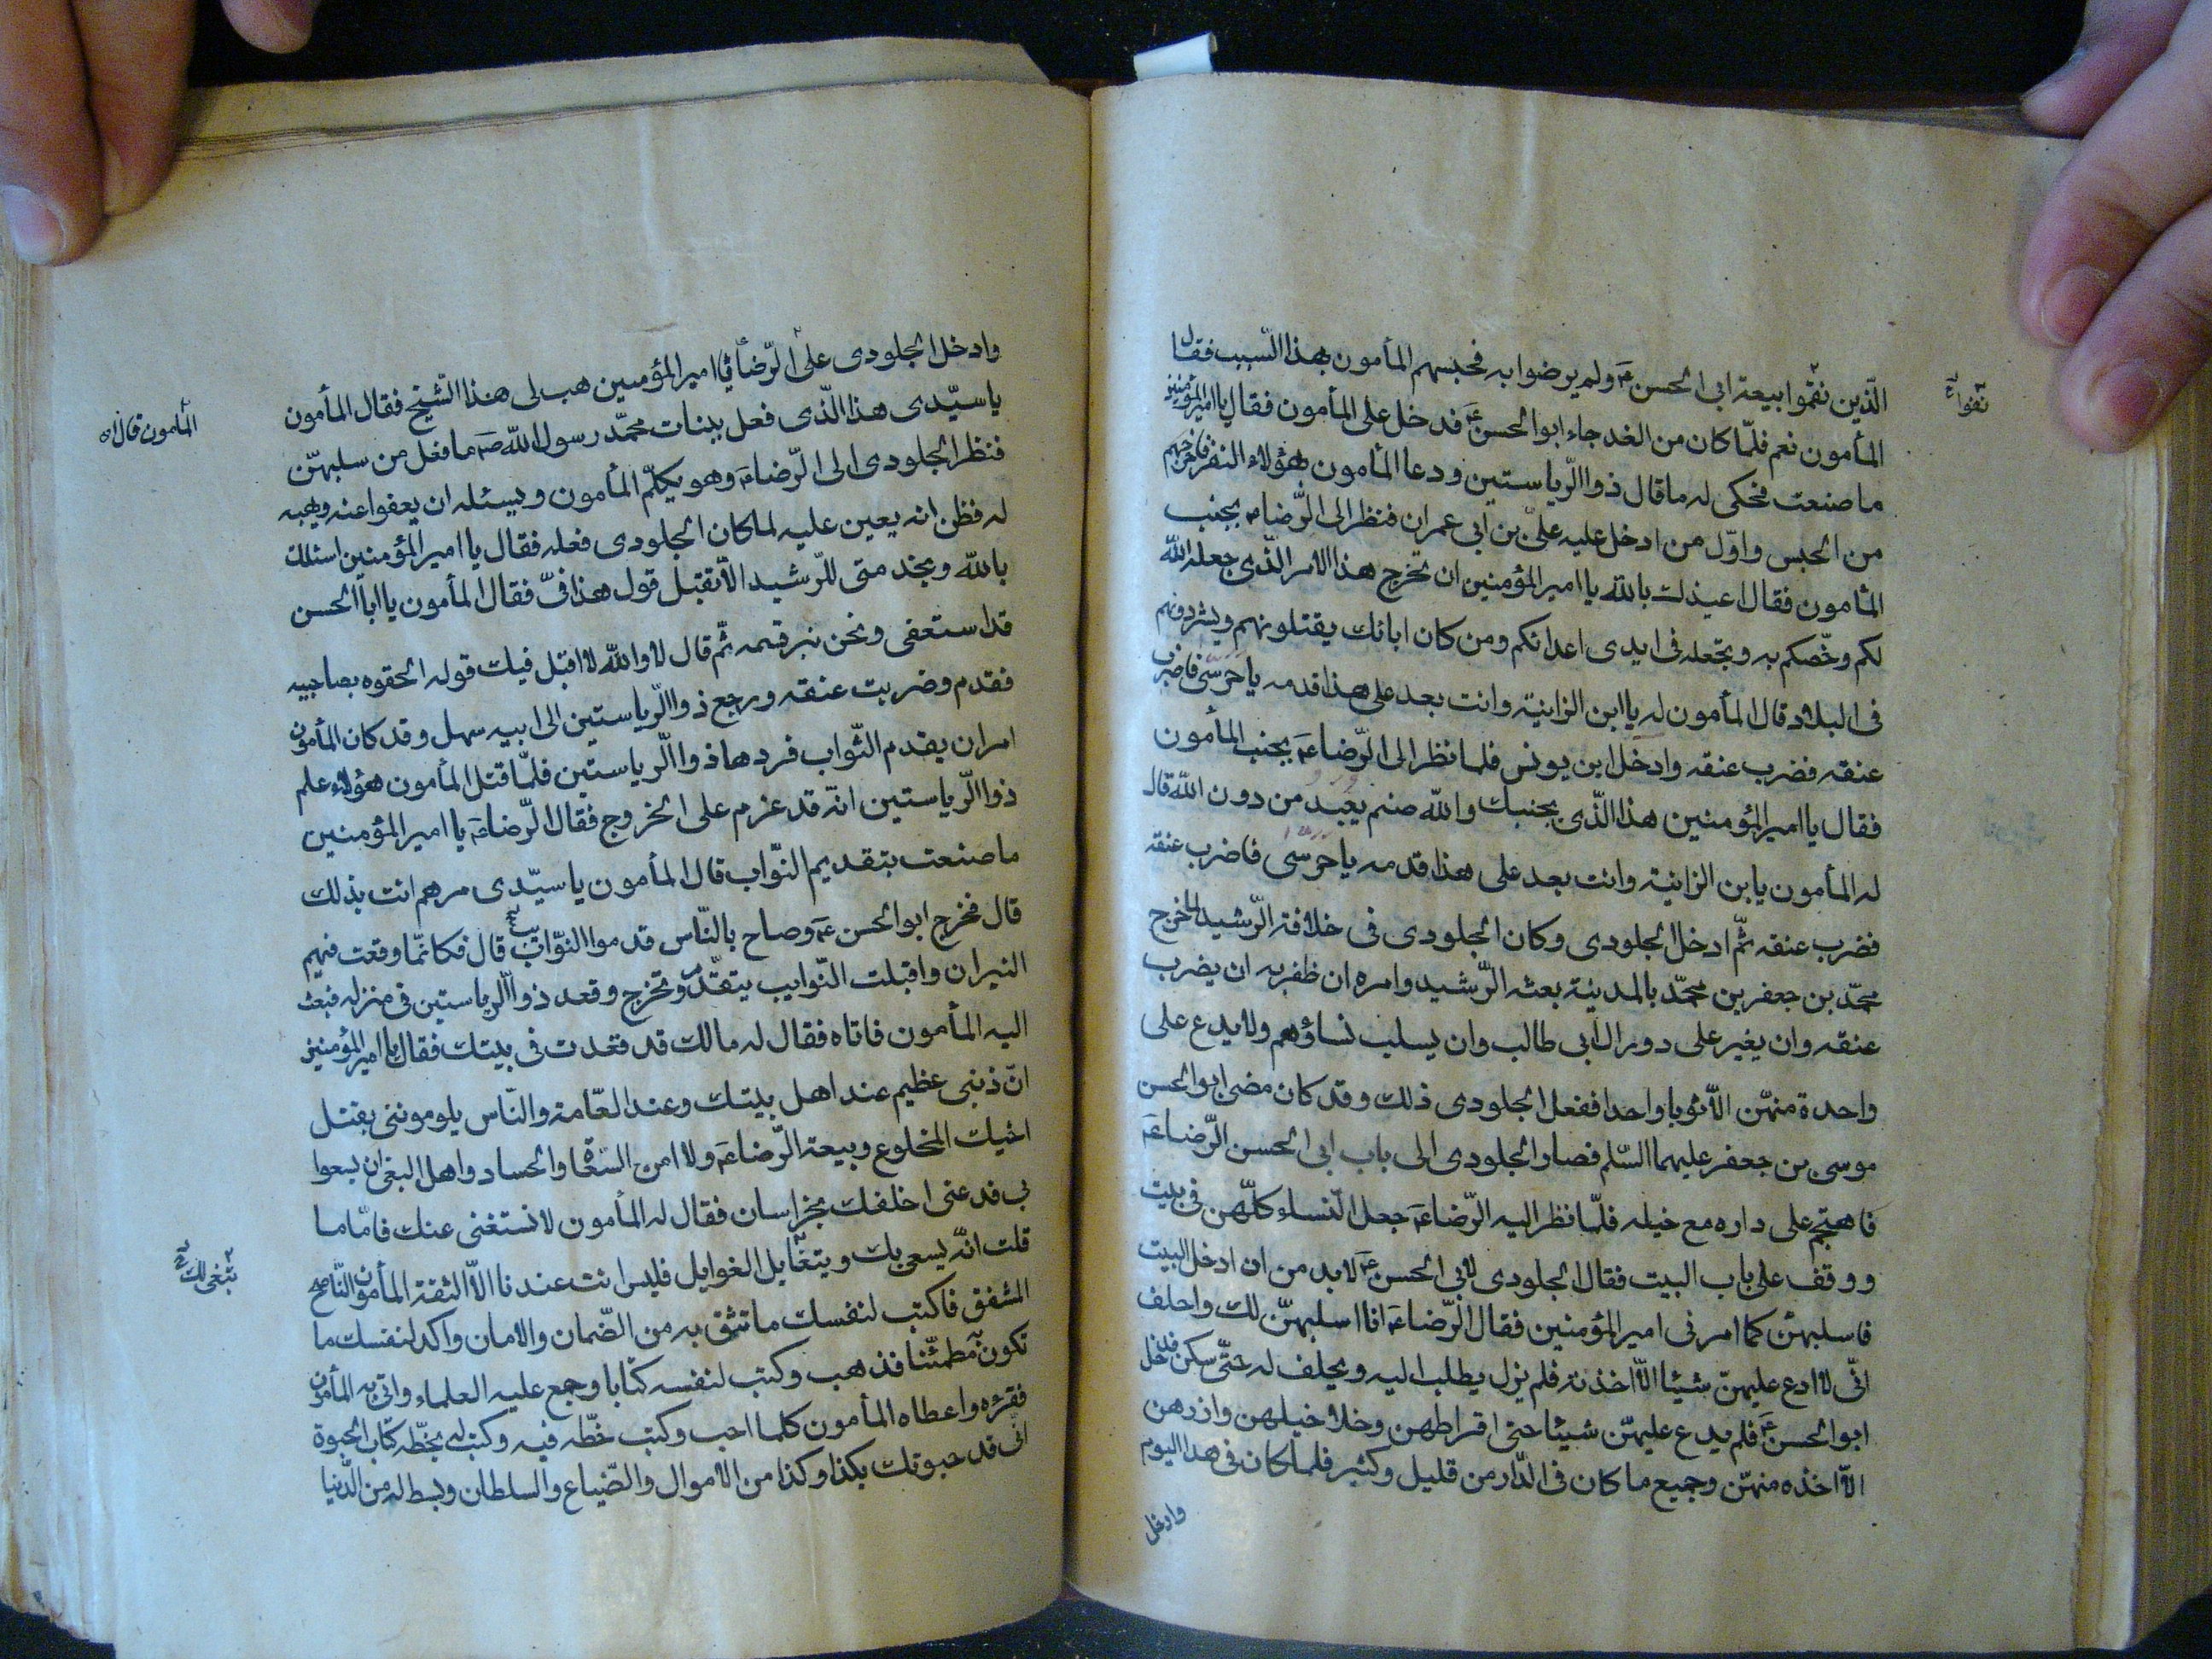 الّذين نقموا بيعة ابى الحسن ع ولم يرضوا به فحبسهم المأمون بهذا السبب فقال
نقوا
المأمون نعم فلمّا كان من الغد جاء ابوالحسن ع فدخل على المأمون فقال يا اميرالمؤمنين
ما صنعت فحكى له ما قال ذوا الرّياستين ودعا المأمون بهؤلاء النفر فاخرجهم
من الحبس واوّل من ادخل عليه علىّ بن ابى عمران فنظر الى الرّضا ع بجنب
المأمون فقال اعيذك بالله يا اميرالمؤمنين ان تخرج هذا الامر الّذى جعله الله
لكم وخصّكم به وتجعله فى ايدى اعدائكم ومن كان ابائك يقتلونهم ويشردونهم
فى البلاد قال المأمون له يا ابن الزانية وانت بعد على هذا قدمه يا حرسىّ فاضرب
عنقه فضرب عنقه وادخل ابن يونس فلما نظر الى الرّضا ع بجنب المأمون
فقال يا اميرالمؤمنين هذا الّذى بجنبك والله صنم يعبد من دون الله قال
له المأمون يابن الزانية وانت بعد على هذا قدمه يا حرسى فاضرب عنقه
فضرب عنقه ثمّ ادخل الجلودى وكان الجلودى فى خلافة الرّشيد لما خرج
محمّد بن جعفر بن محمّد بالمدينة بعثه الرّشيد وامره ان ظفر به ان يضرب
عنقه وان يغير على دور ال ابى طالب وان يسلب نساؤهم ولا يدع على
واحدة منهنّ الاّ ثوبا واحدا ففعل الجلودى ذلك وقد كان مضى ابوالحسن
موسى بن جعفر عليهما السّلم فصار الجلودى الى باب ابى الحسن الرّضا ع
فاهجم على داره مع خيله فلمّا نظر اليه الرّضا ع جعل النّساء كلّهن فى بيت
ووقف على باب البيت فقال الجلودى لابى الحسن ع لابد من ان ادخل البيت
فاسلبهنّ كما امرنى اميرالمؤمنين فقال الرّضا ع انا اسلبهنّ لك واحلف
انّى لا ادع عليهنّ شيئا الاّ اخذته فلم يزل يطلب اليه ويحلف له حتّى سكن فدخل
ابوالحسن ع فلم يدع عليهنّ شيئا حتى اقراطهن وخلاخيلهن وازرهن
الاّ اخذه منهنّ وجميع ما كان فى الدّار من قليل وكثير فلما كان فى هذا اليوم
وادخل
وادخل الجلودى على الرّضا يا اميرالمؤمنين هب لى هذا الشّيخ فقال المأمون
المأمون قال
يا سيّدى هذا الّذى فعل ببنات محمّد رسول الله ص ما فعل من سلبهنّ
فنظر الجلودى الى الرّضا ع وهو يكلّم المأمون ويسئله ان يعفوا عنه ويهبه
له فظن انه يعين عليه لما كان الجلودى فعله فقال يا اميرالمؤمنين اسئلك
بالله وبخدمتى للرّشيد الاّ تقبل قول هذا فىّ فقال المأمون يا ابا الحسن
قد استعفى ونحن نبر قسمه ثمّ قال لا والله لا اقبل فيك قوله الحقوه بصاحبيه
فقدم وضربت عنقه ورجع ذوا الرّياستين الى ابيه سهل وقد كان المأمون
امر ان يقدم النّواب فردها ذوا الرّياستين فلمّا قتل المأمون هؤلاء علم
ذوا الرّياستين انّه قد عزم على الخروج فقال الرّضا ع يا اميرالمؤمنين
ما صنعت بتقديم النّواب قال المأمون يا سيّدى مرهم انت بذلك
قال فخرج ابوالحسن ع وصاح بالنّاس قدموا النّواب قال فكانمّا وقعت فيهم
النيران واقبلت النّوايب يتقدّم وتخرج وقعد ذوا الرياستين فى منزله فبعث
اليه المأمون فاتاه فقال له مالك قد قعدت فى بيتك فقال يا اميرالمؤمنين
انّ ذنبى عظيم عند اهل بيتك وعند العامّة والنّاس يلوموننى بقتل
اخيك المخلوع وبيعة الرّضا ع ولا امن السّعاة والحساد واهل البغى ان يسعوا
بى فدعنى اخلفك بخراسان فقال له المأمون لا نستغنى عنك فامّا ما
قلت انّه يسعى بك ويتغايل الغوايل فليس انت عندنا الاّ الثقة المأمون النّاصح
يبغى لك
المشفق فاكتب لنفسك ما تثق به من الضّمان والامان واكد لنفسك ما
تكون مطمئنا فذهب وكتب لنفسه كتابا وجمع عليه العلماء واتى به المأمون
فقرئه واعطاه المأمون كلما احب وكتب خطّه فيه وكتب له بخطّه كتاب الحبوة
انّى قد حبوتك بكذا وكذا من الاموال والضّياع والسلطان وبسط له من الدّنيا